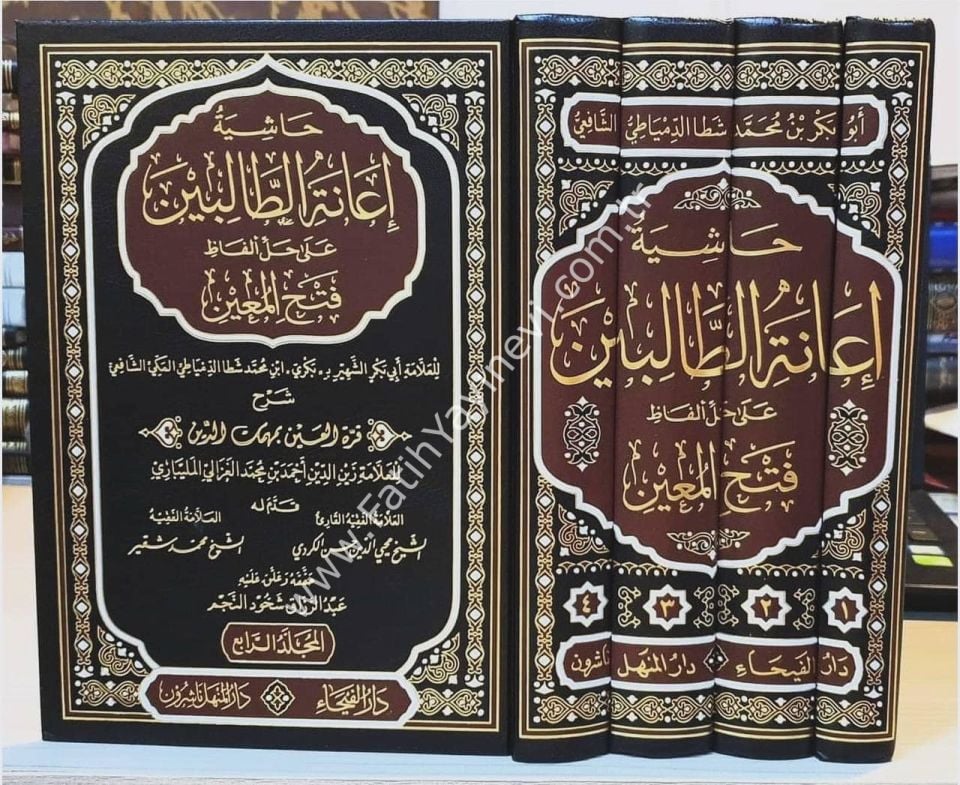 حاشية
إعانة الطالبين
على حل ألفاظ
فتح المعين
للعلامة أبي بكر الشهير بـ «بكري» ابن محمد شطا الدمياطي المكي الشافعي
شرح
قرة العين بمهمات الدين
للعلامة زين الدين أحمد بن محمد الغزالي المليباري
قدم له
العلامة الفقيه القارئ
الشيخ محيي الدين حسن الكردي
العلامة الفقيه
الشيخ محمد شقير
حققه وعلق عليه
عبد الرزاق شحود النجم
المجلد الرابع
دار الفيحاء
دار المنهل ناشرون
أبو بكر بن محمد شطا الدمياطي الشافعي
حاشية
إعانة الطالبين
على حل ألفاظ
فتح المعين
١ ٢ ٣ ٤
دار الفيحاء دار المنهل ناشرون
www.FatihYayinevi.com.tr